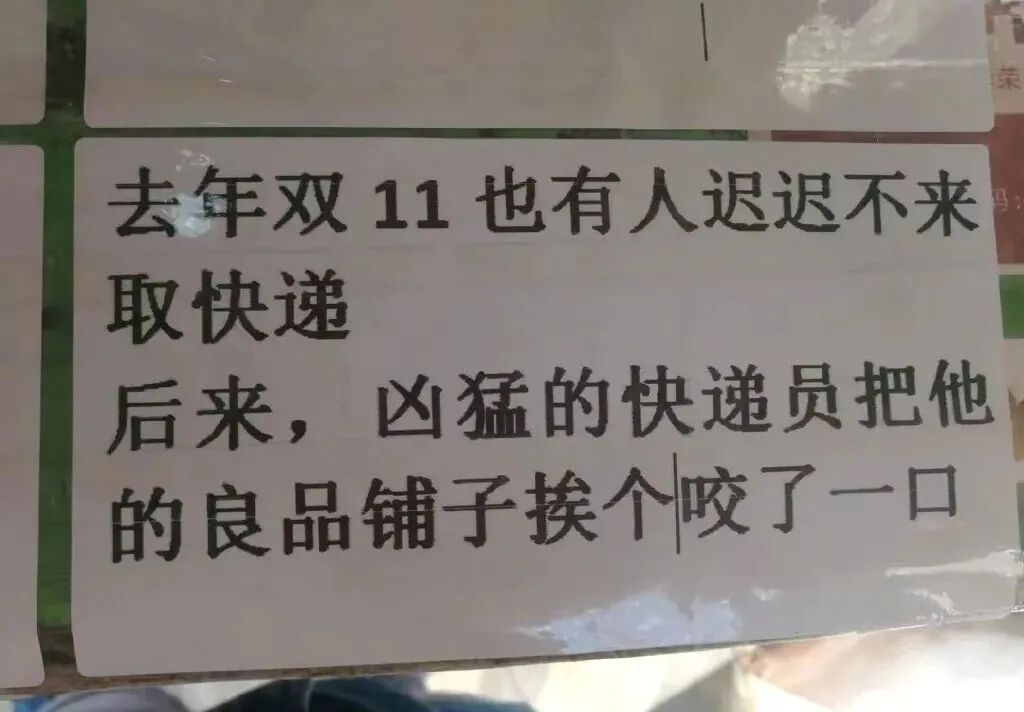 荣
码：
去年双11也有人迟迟不来
取快递
后来，凶猛的快递员把他
的良品铺子挨个咬了一口